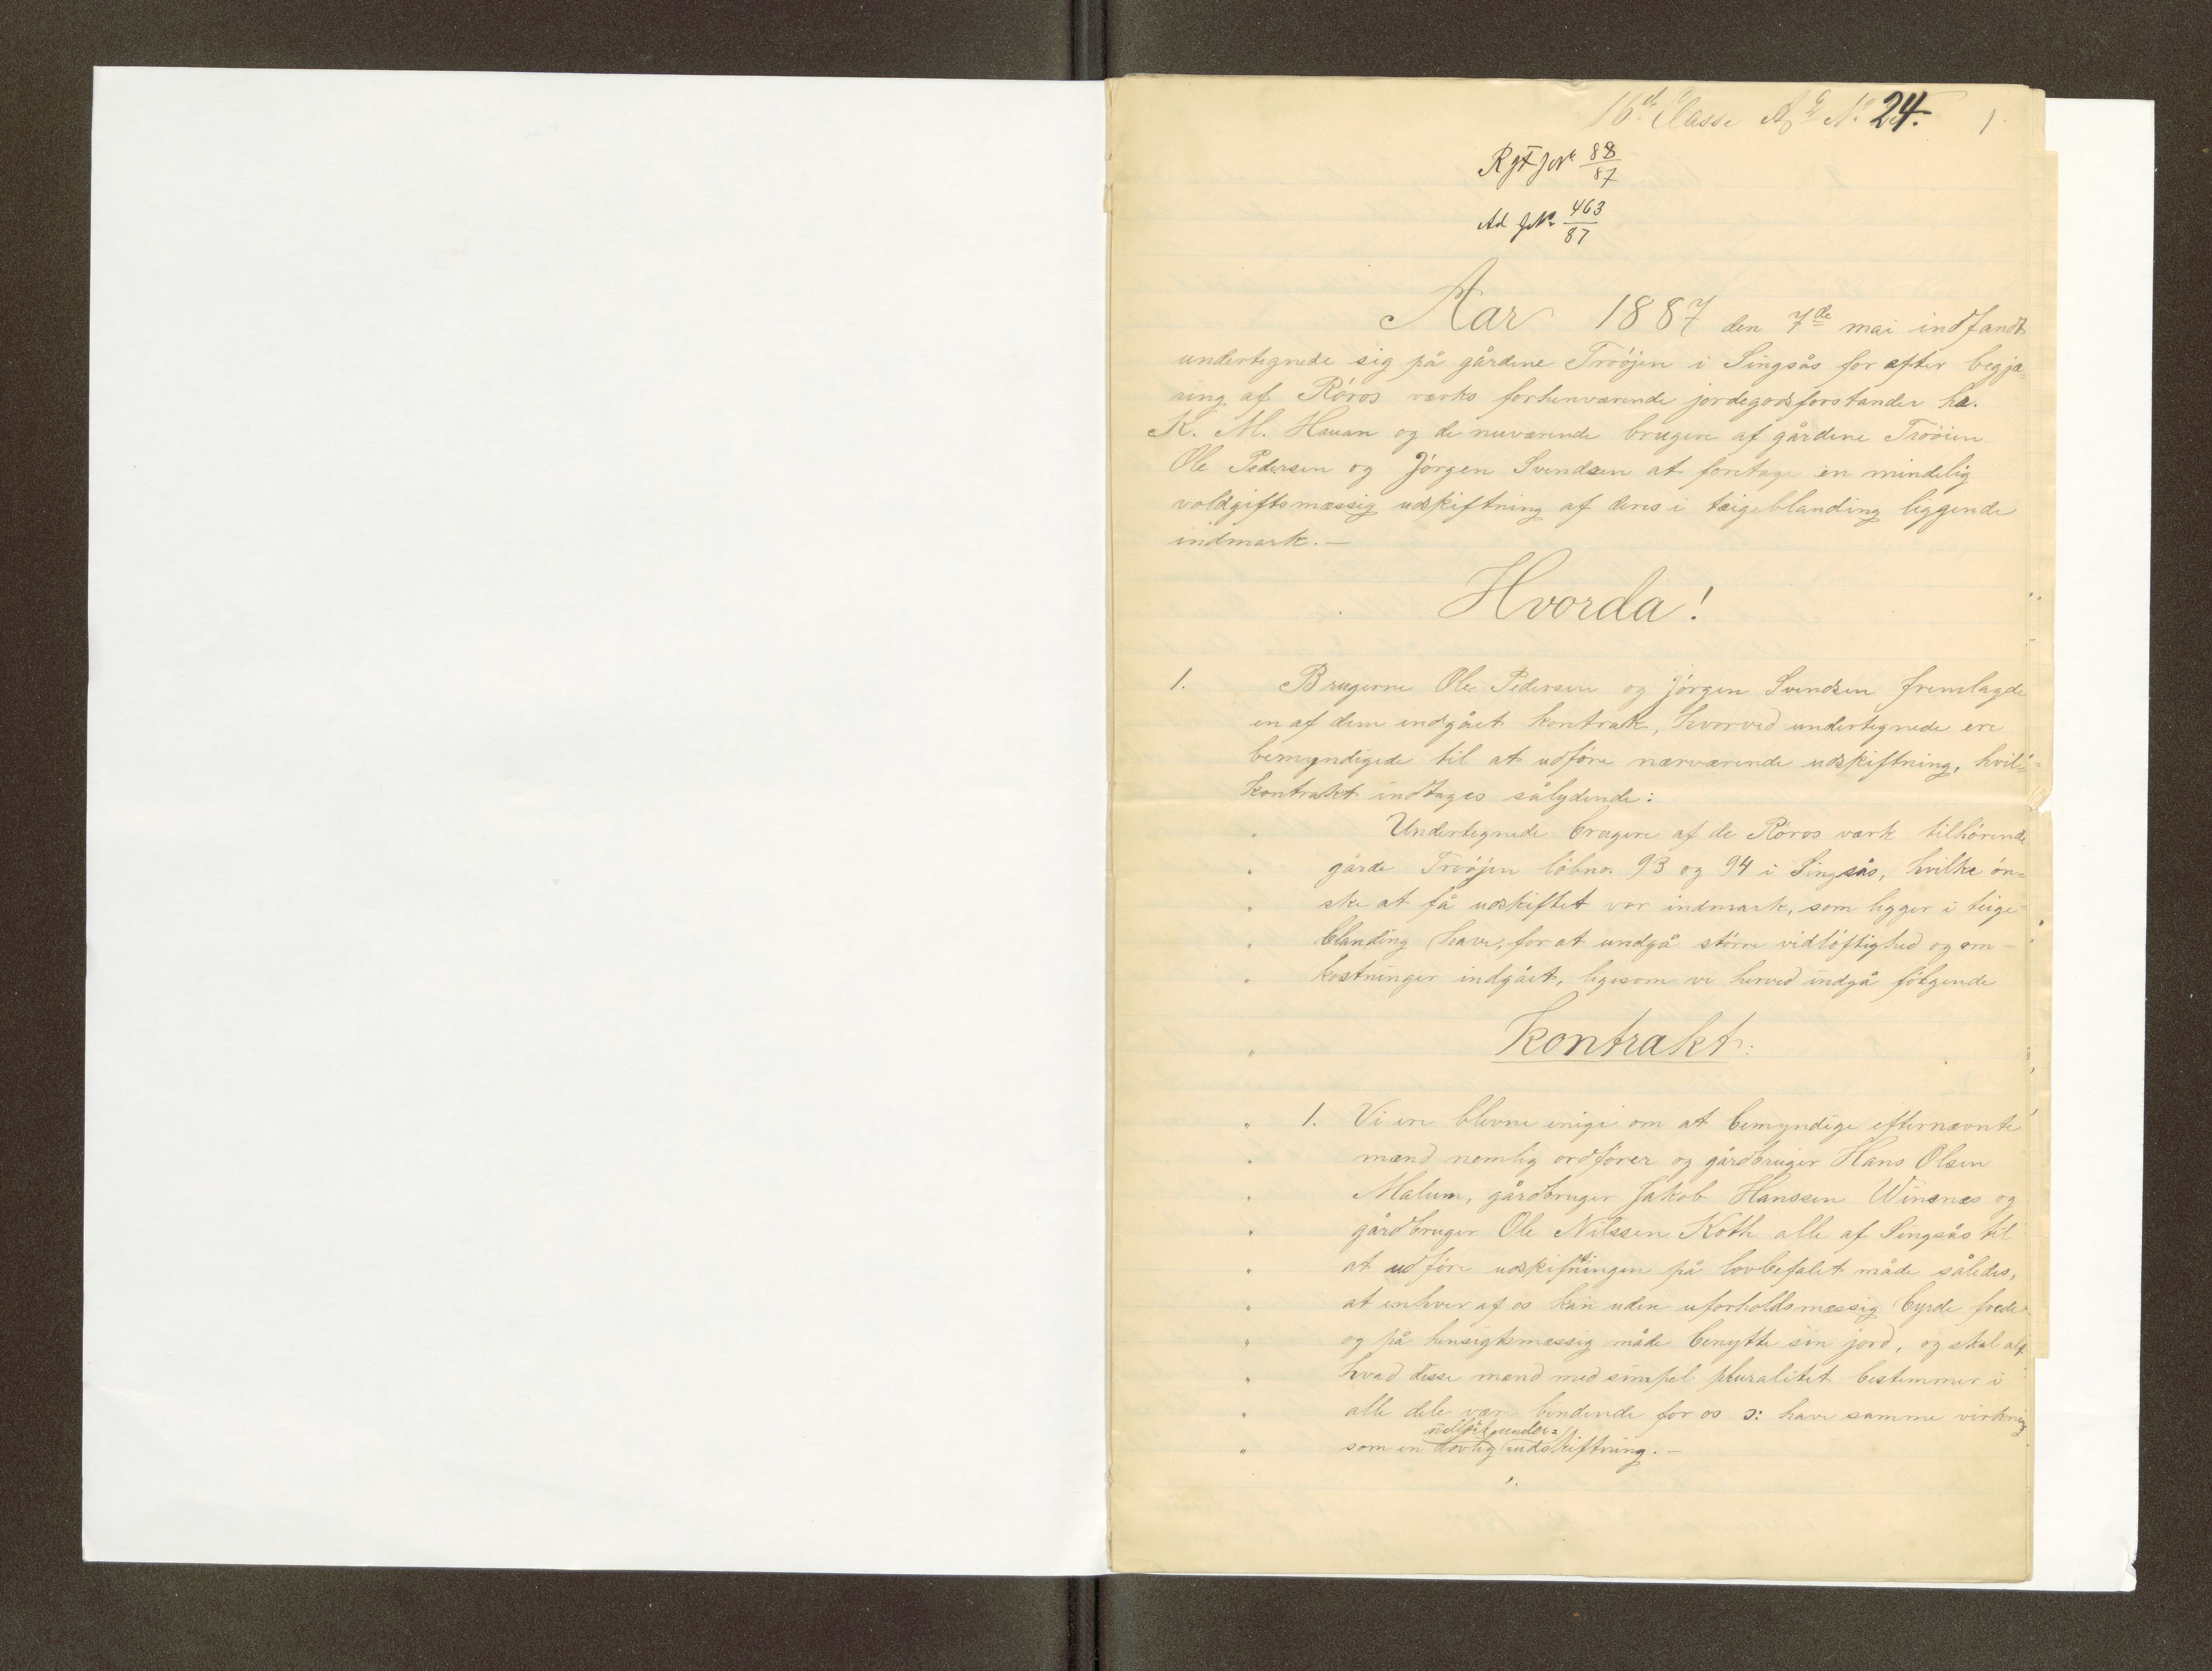 16de Classe No 24. 1
Rgt J No 88/87
Ad J No 463/87
Aar 1887 den 7de mai indfandt
undertegnede sig på gårdene Troøjen i Singsås for efter begjæ-
ring af Røros værks forhenværende jordegodsforstander hr.
K. M. Hauan og de nuværende brugere af gårdene Troøien
Ole Pedersen og Jørgen Svendsen at foretage en mindelig
voldgiftsmæssig udskiftning af deres i teigeblanding liggende
indmark. —
Hvorda!
1. Brugerne Ole Pedersen og Jørgen Svendsen fremlagde
en af dem indgået kontrakt, hvorved undertegnede ere
bemyndigede til at udføre nærværende udskiftning, hvil-
kontrakt indtages sålydende:
" Undertegnede brugere af de Røros værk tilhørende
" gårde Troøjen løbno. 93 og 94 i Singsås, hvilke øn=
" ske at få udskiftet vor indmark, som ligger i teige
" blanding have, for at undgå større vidløftighed og om-
" kostninger indgået, ligesom vi herved indgå følgende
" Kontrakt:
" 1. Vi ere blevne enige om at bemyndige efternævnte
" mænd nemlig ordfører og gårdbruger Hans Olsen
" Malum, gårdbruger Jakob Hanssen Winsnes og
" gårdbruger Ole Nilssen Koth alle af Singsås til
" at udføre udskiftningen på lovbefalet måde således,
" at enhver af os kan uden uforholdsmæssig byrde frede
" og på hensigtsmæssig måde benytte sin jord, og skal alt
" hvad disse mænd med simpel pluralitet bestemmer i
" alle dele være bindende for os ɔ: have samme virkning
" som en lovlig udskiftning. —